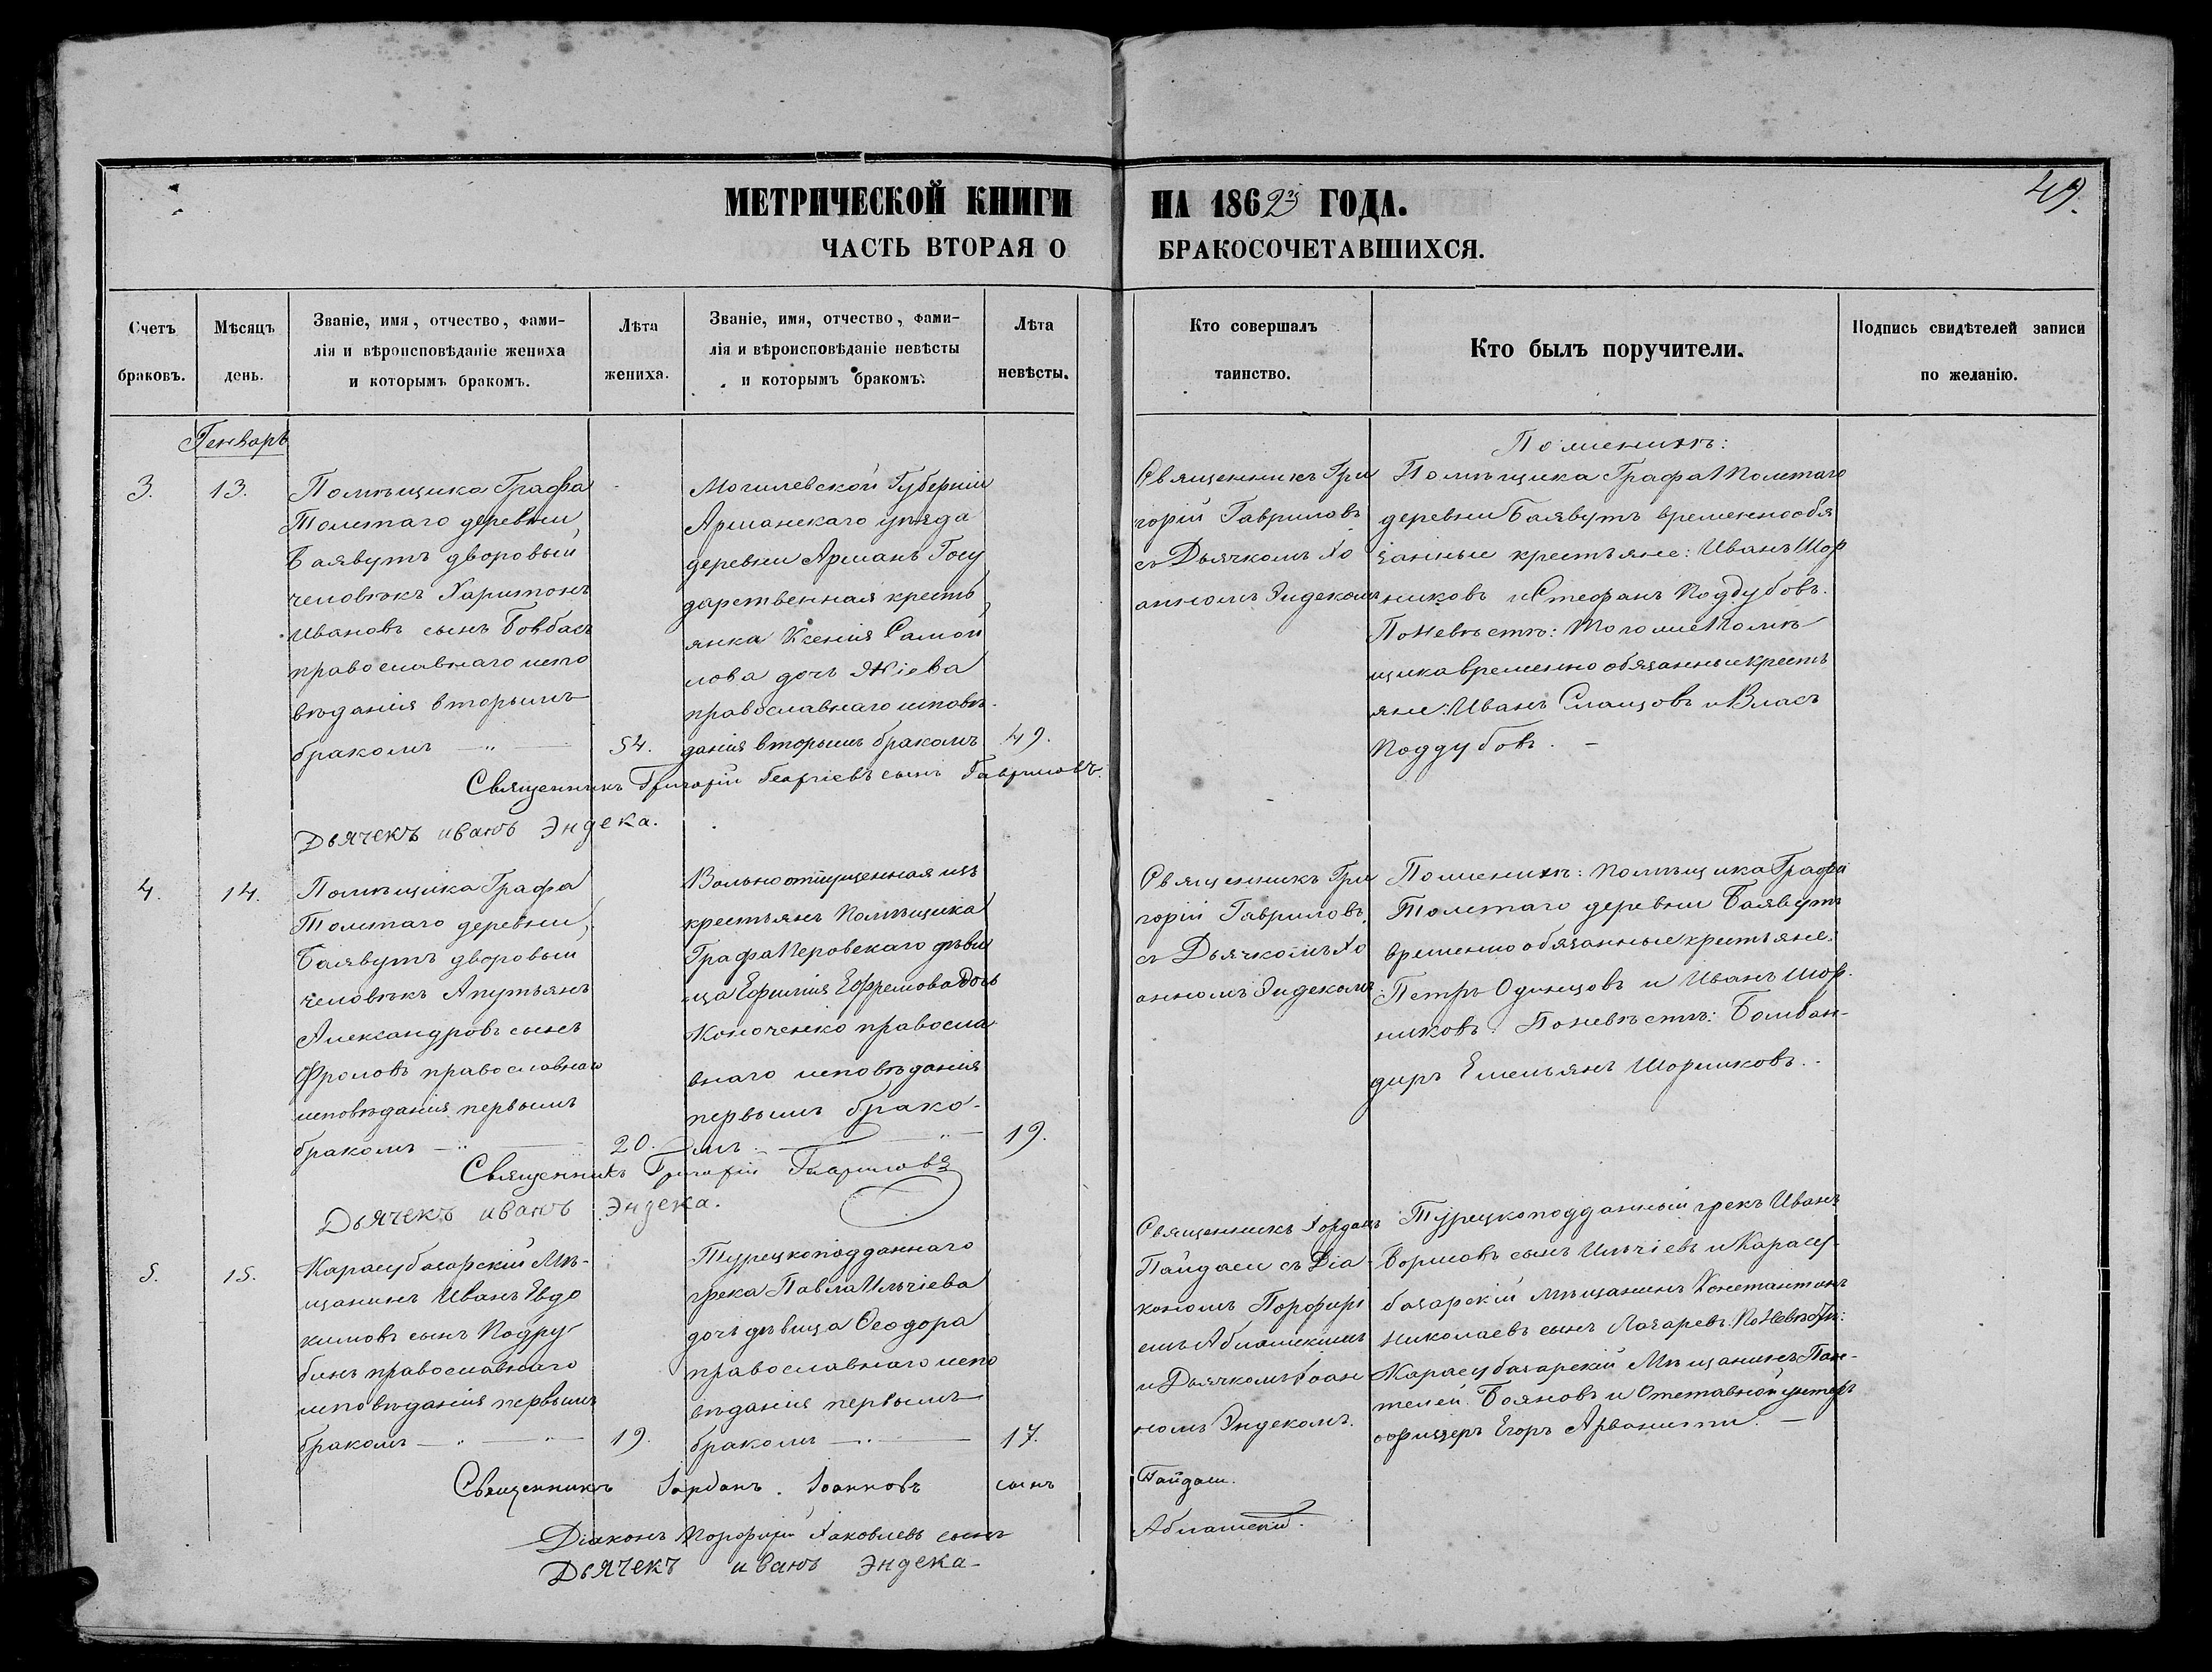 МЕТРИЧЕСКОЙ КНИГИ НА 1862 ГОДА.
49.
ЧАСТЬ ВТОРАЯ О БРАКОСОЧЕТАВШИХСЯ.
Счетъ браковъ.
Мѣсяцъ день.
Званіе, имя, отчество, фами-
лія и вѣроисповѣданіе жениха
и которымъ бракомъ.
Лѣта жениха.
Званіе, имя, отчество, фами-
лія и вѣроисповѣданіе невѣсты
и которымъ бракомъ.
Лѣта невѣсты.
Кто совершалъ таинство.
Кто былъ поручители.
Подпись свидѣтелей записи
по желанію.
Генварь
3.
13.
Помѣщика Графа
Толстаго деревни
Баявутъ дворовый
человѣкъ Харитонъ
Ивановъ сынъ Бовбасъ
православнаго испо
вѣданія вторымъ
бракомъ
54.
Могилевской Губерніи
Аршанскаго уѣзда
деревни Аршанъ Госу
дарственная кресть
янка Ксенія Самой
лова дочь
православнаго исповѣ-
данія вторымъ бракомъ
49.
Священникъ Гри
горій Гавриловъ
съ Дьячкомъ Іо
анномъ Эндекомъ
По женихѣ:
Помѣщика Графа Толстаго
деревни Баявутъ временнообя
занные крестьяне: Иванъ Шор
никовъ и Стефанъ Поддубовъ.
По Невѣстѣ: Того же Помѣ
щика временно обязанные кресть
яне: Иванъ Слащовъ и Власъ
Поддубовъ. -
Священникъ Григорій Георгіевъ сынъ Гавриловъ.
Дьячекъ иванъ Эндека.
4.
14.
Помѣщика Графа
Толстаго деревни
Баявутъ дворовый
человѣкъ Апутьянъ
Александровъ сынъ
Фроловъ православнаго
исповѣданія первымъ
бракомъ
20.
Вольноотпущенная изъ
крестьянъ Помѣщика
Графа Перовскаго дѣви
ца Ефимія Ефремова дочь
Коноченко правосла
внаго исповѣданія
первымъ брако-
мъ
19.
Священникъ Гри
горій Гавриловъ
съ Дьячкомъ Іо
анномъ Эндекомъ
По женихѣ: Помѣщика Графа
Толстаго деревни Баявутъ
временно обязанные крестьяне:
Петръ Одинцовъ и Иванъ Шор-
никовъ. По невѣстѣ: Бомбан-
диръ Емельянъ Шорниковъ.
Священникъ Григорій Гавриловъ
Дьячекъ иванъ Эндека.
5.
15.
Карасубазарскій Мѣ-
щанинъ Иванъ Евдо
кимовъ сынъ Подру-
бинъ православнаго
исповѣданія первымъ
бракомъ
19.
Турецкоподданнаго
грека Павла Ильчіева
дочь дѣвица Ѳеодора
православнаго испо
вѣданія первымъ
бракомъ
17.
Священникъ Іорданъ
Пайдаси съ Діа-
кономъ Порфирі
емъ
и Дьячкомъ Іоан
номъ Эндекомъ.
Турецкоподданный грекъ Иванъ
сынъ Ильчіевъ и Карасу-
базарскій мѣщанинъ Константинъ
Николаевъ сынъ Лазаревъ. По Невѣстѣ:
Карасубазарскій Мѣщанинъ Пан-
телей Бояновъ и Отставной унтеръ
офицеръ Егоръ Арванитти. -
Священникъ Іорданъ. Іоанновъ сынъ Пайдаси.
Діаконъ Порфирій Іаковлевъ сынъ
Дьячекъ иванъ Эндека-